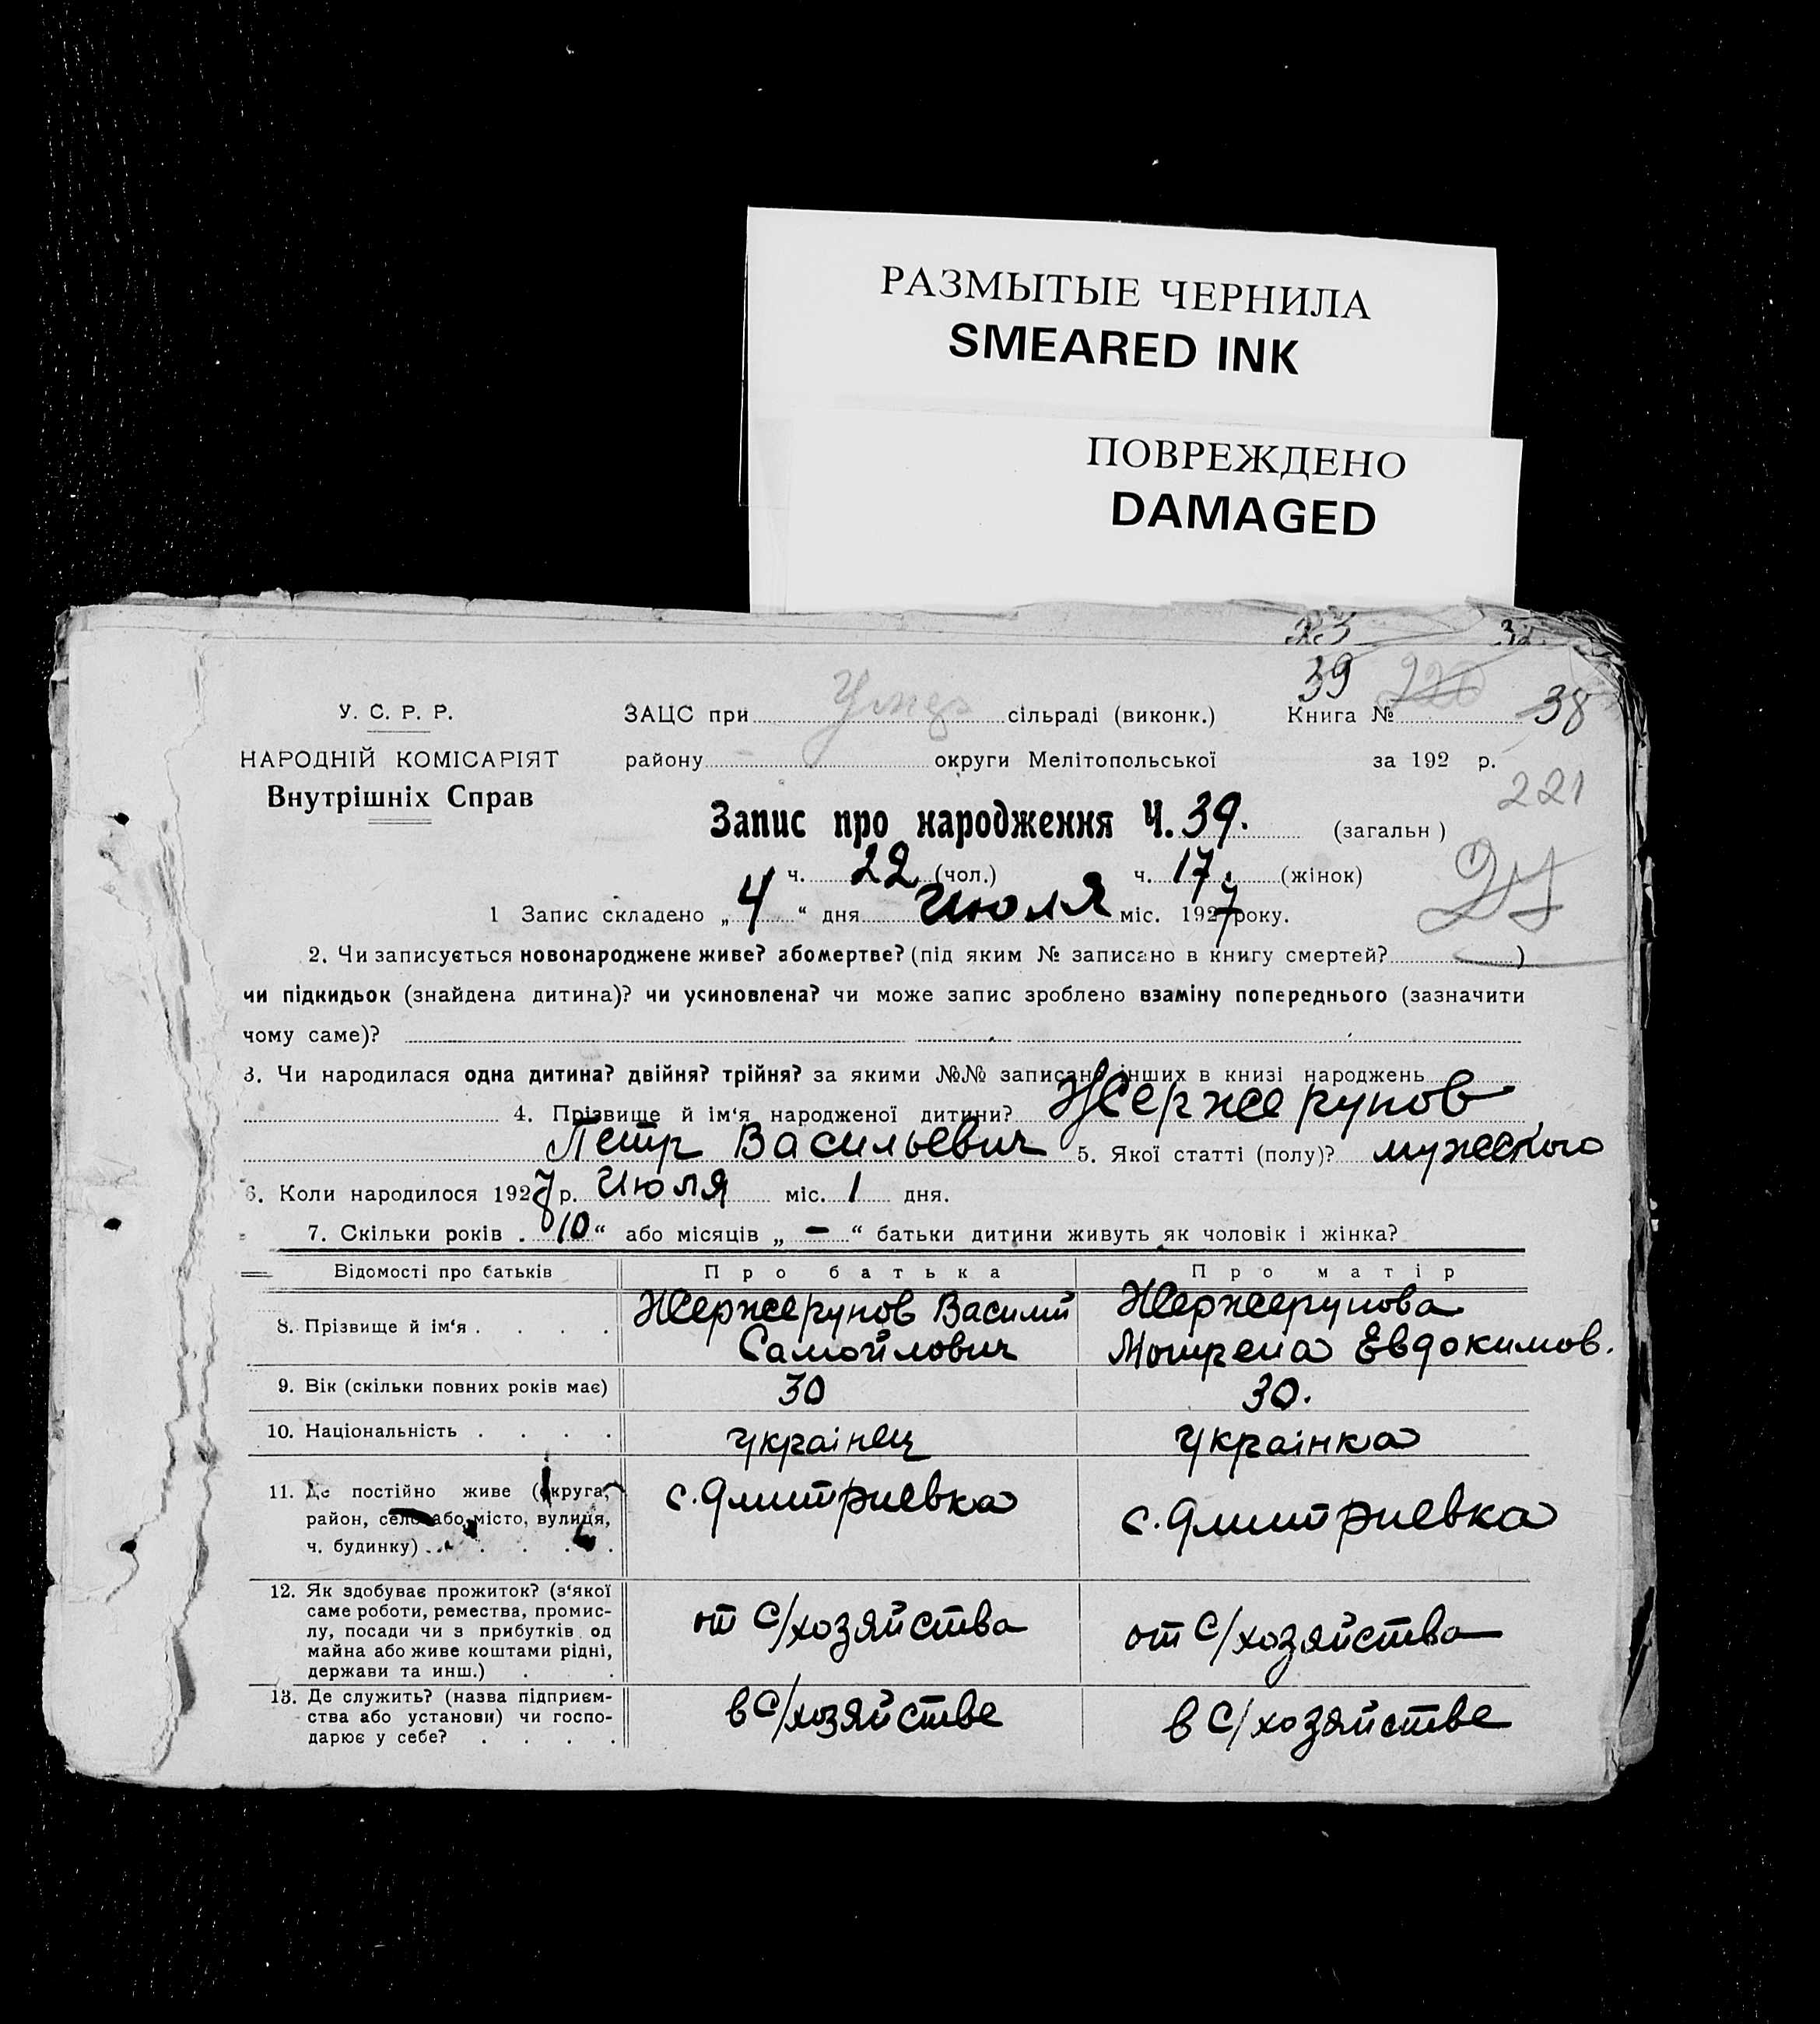 РАЗМЫТЫЕ ЧЕРНИЛА
SMEARED INK
ПОВРЕЖДЕНО
DAMAGED
23 32
39 220
У. С. Р. Р. ЗАЦС при сільраді (виконк.) Книга № 38
НАРОДНІЙ КОМІСАРІЯТ району округи Мелітопольської за 192 р.
Внутрішніх Справ 221
Запис про народження Ч. 39. (загальн)
ч. 22 (чол.) ч. 17. (жінок)
1 Запис складено „4“ дня Июля міс. 1927 року.
2. Чи записується новонароджене живе? або мертве? (під яким № записано в книгу смертей? )
чи підкидьок (знайдена дитина)? чи усиновлена? чи може запис зроблено взаміну попереднього (зазначити
чому саме)?
3. Чи народилася одна дитина? двійня? трійня? за якими №№ записано інших в книзі народжень
4. Прізвище й ім‘я народженої дитини? Жержерунов
Петр Васильевич 5. Якої статті (полу)? мужеского
6. Коли народилося 1927 р. Июля міс. 1 дня.
7. Скільки років „10“ або місяців „ — “ батьки дитини живуть як чоловік і жінка?
Відомості про батьків Про батька Про матір
8. Прізвище й ім‘я . . . . Жержерунов Василий Жержерунова
Самойлович Мотрена Евдокимов.
9. Вік (скільки повних років має) 30 30.
10. Національність . . . . українец українка
11. Де постійно живе (округа, с. Дмитриевка с. Дмитриевка
район, село або місто, вулиця,
ч. будинку) . . . . .
12. Як здобуває прожиток? (з‘якої
саме роботи, ремества, промис-
лу, посади чи з прибутків од от С/хозяйства от С/хозяйства
майна або живе коштами рідні,
держави та инш.) . .
13. Де служить? (назва підприєм-
ства або установи) чи госпо- в С/хозяйстве в С/хозяйстве
дарює у себе? . . . .